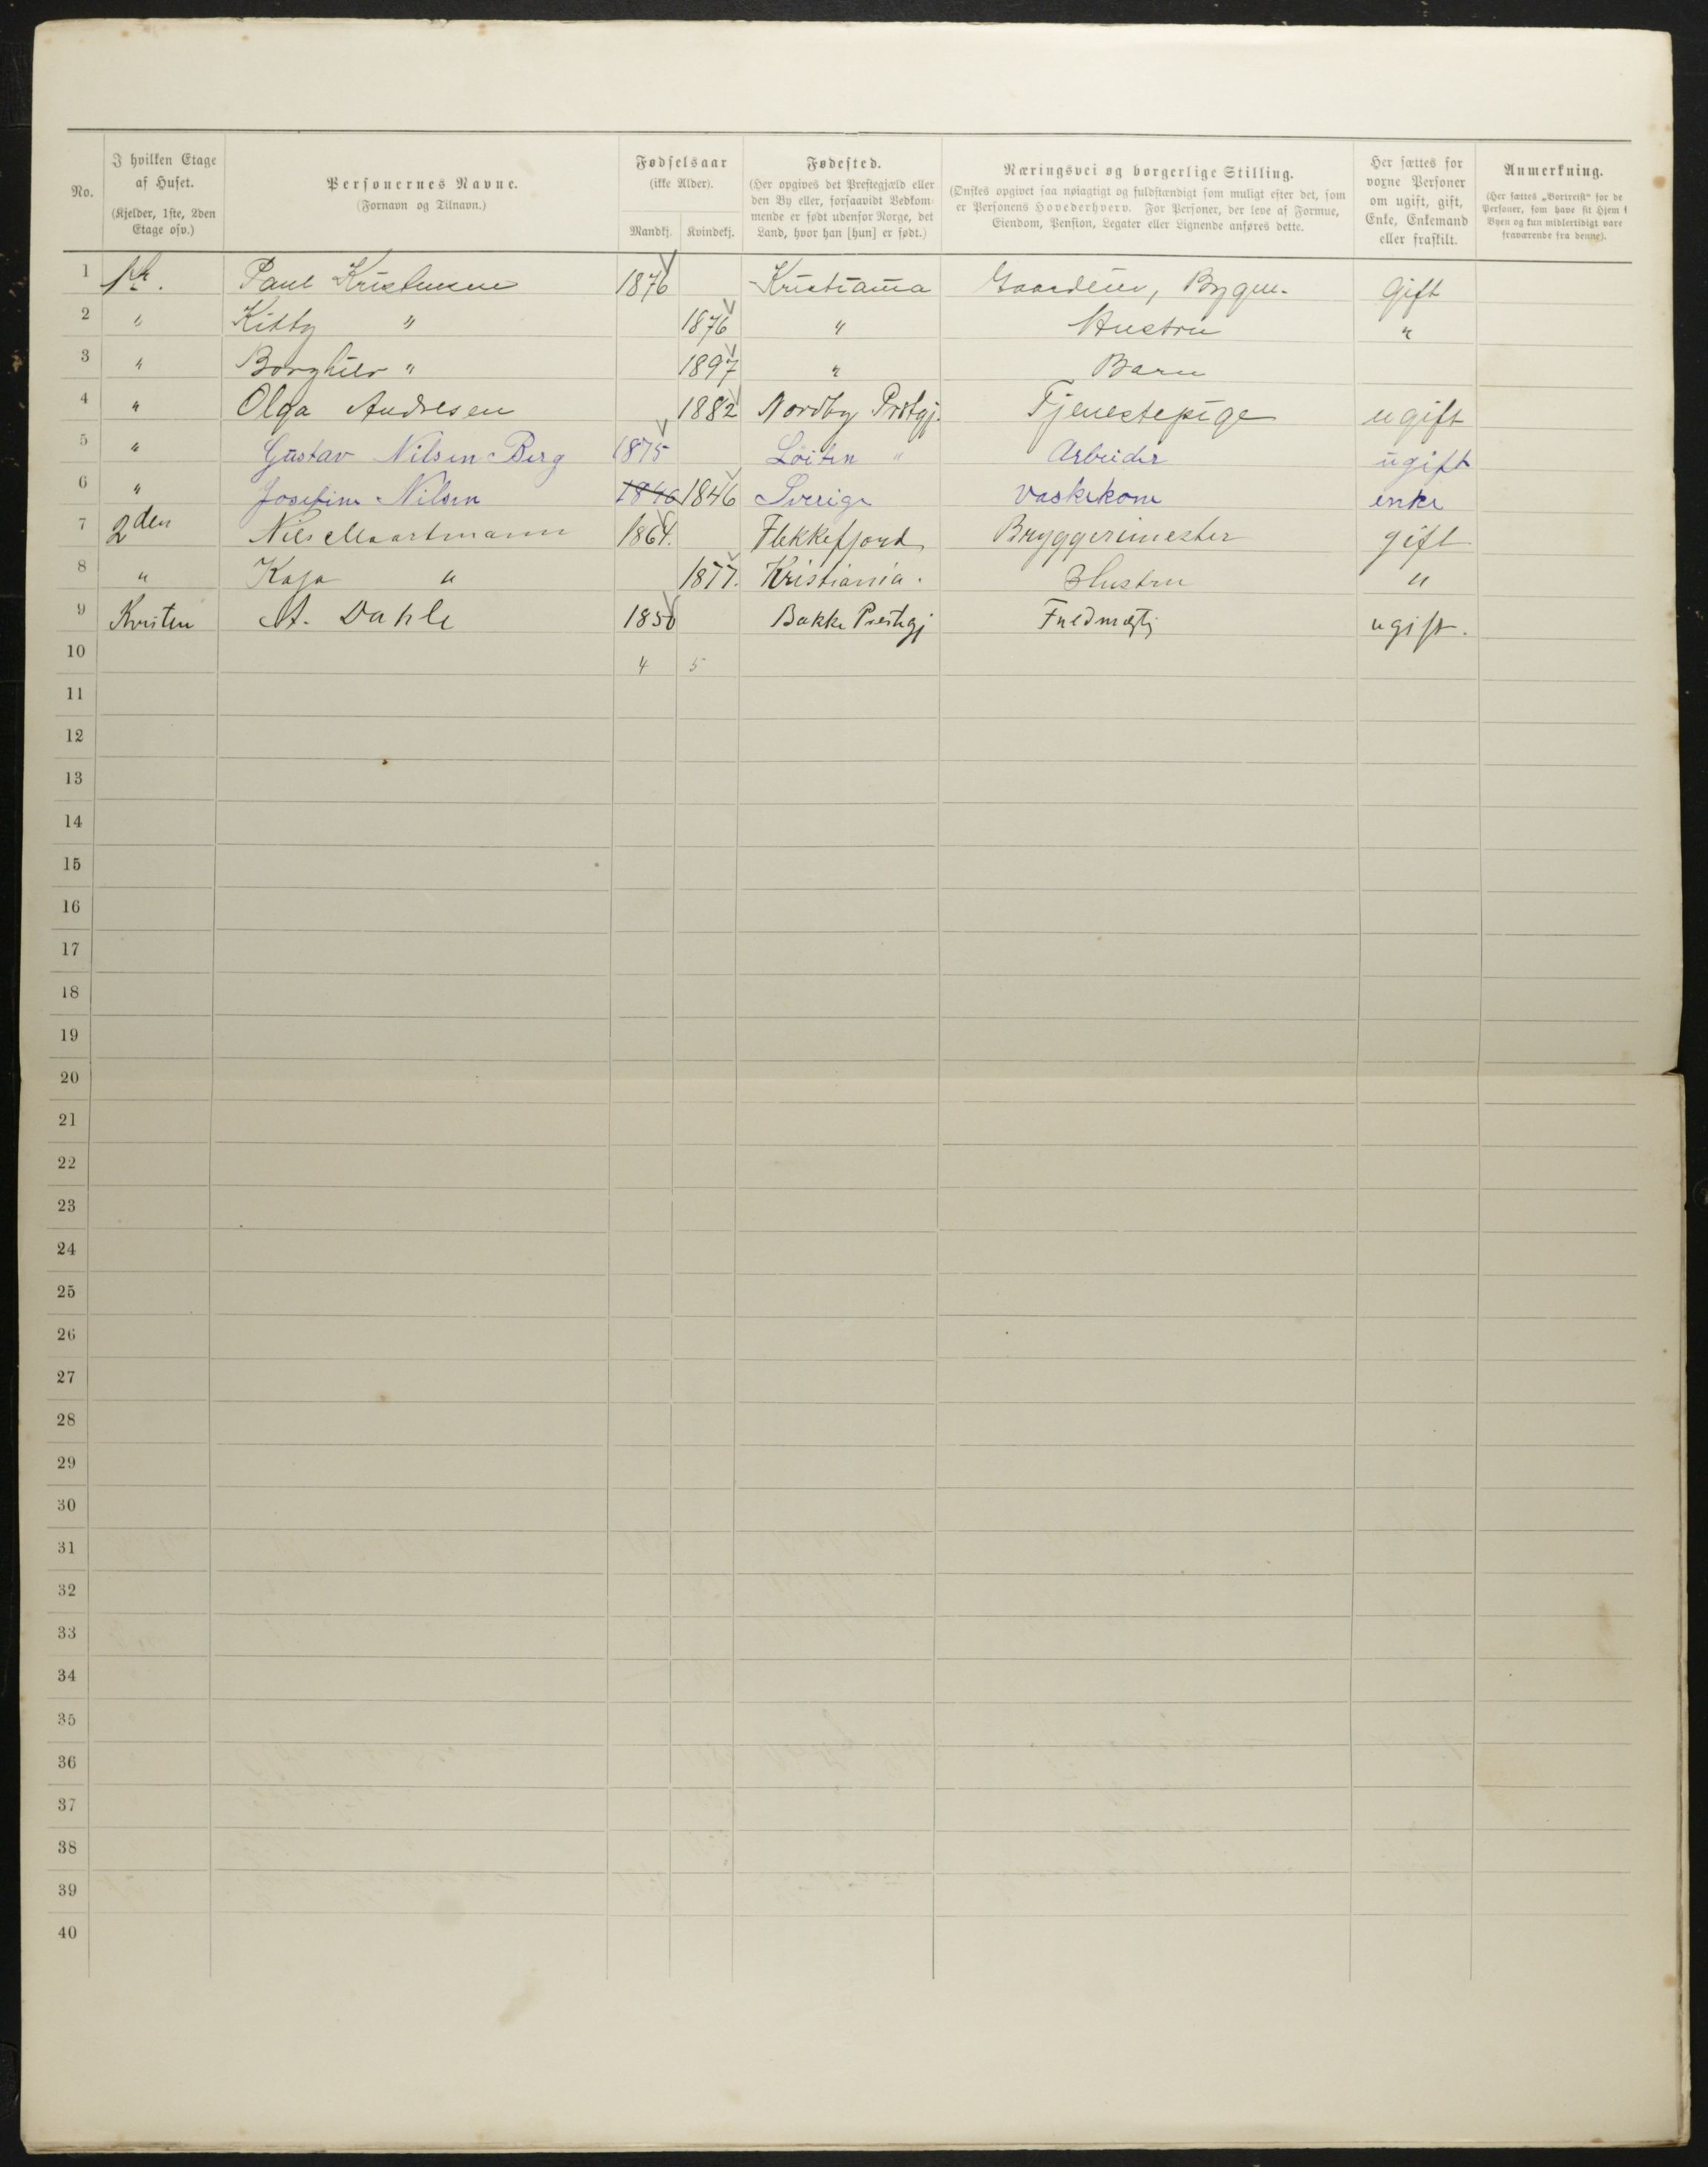 No.
I hvilken Etage af Huset.
(Kjelder, 1ste, 2den Etage osv.)
Personernes Navne.
(Fornavn og Tilnavn.)
Fødselsaar
(ikke Alder).
Mandkj. Kvindekj.
Fødested.
(Her opgives det Prestegjæld eller
den By eller, forsaavidt Vedkom-
mende er født udenfor Norge, det
Land, hvor han [hun] er født.)
Næringsvei og borgerlige Stilling.
(Ønskes opgivet saa nøiagtigt og fuldstændigt som muligt efter det, som
er Personens Hovederhverv. For Personer, der leve af Formue,
Eiendom, Pension, Legater eller Lignende anføres dette.
Her sættes for
voxne Personer
om ugift, gift,
Enke, Enkemand
eller fraskilt.
Anmerkning.
(Her sættes „Bortreist“ for de
Personer, som have sit Hjem i
Byen og kun midlertidigt vare
fraværende fra denne).
1 Paul Kristensen 1876 Kristiania Gaardeier, Bygm. Gift
2 " Kitty " 1876 " Hustru "
3 " Borghild " 1897 " Barn
4 " Olga Andresen 1882 Nordby Prstgj. Tjenestepige ugift
5 " Gustav Nilsen Berg 1875 Löiten " Arbeider ugift
6 " Josefine Nilsen 1846 1846 Sverige vaskekone enke
7 2den Nils Maartmann 1864. Flekkefjord Bryggerimester gift
8 " Kaja " 1877. Kristiania. Hustru "
9 Kvisten A. Dahle 1850 Bakke Prestegj Fuldmægtig ugift.
10 4 5
11
12
13
14
15
16
17
18
19
20
21
22
23
24
25
26
27
28
29
30
31
32
33
34
35
36
37
38
39
40